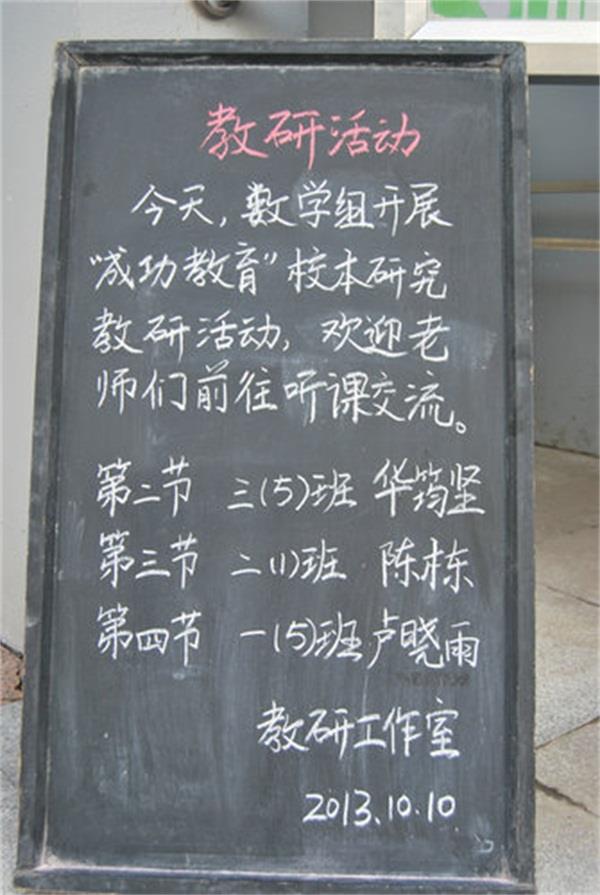 教研活动
今天,数学组开展
“成功教育”校本研究
教研活动,欢迎老
师们前往听课交流。
第二节 三(5)班 华筠坚
第三节 二(1)班 陈栋
第四节 一(5)班 卢晓雨
教研工作室
2013.10.10